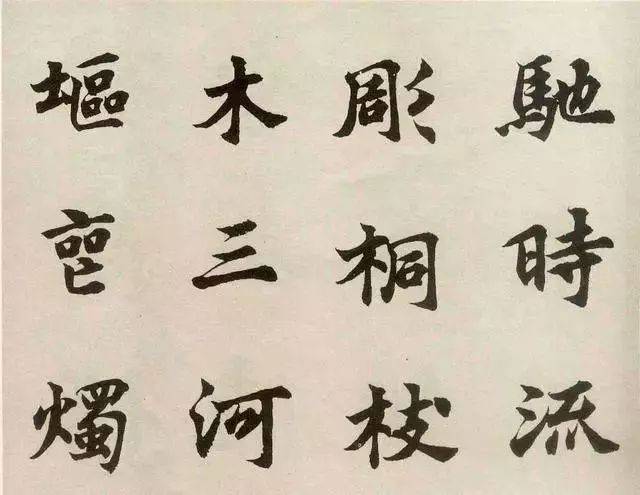 馳時流
彫桐枝
木三河
塸燭